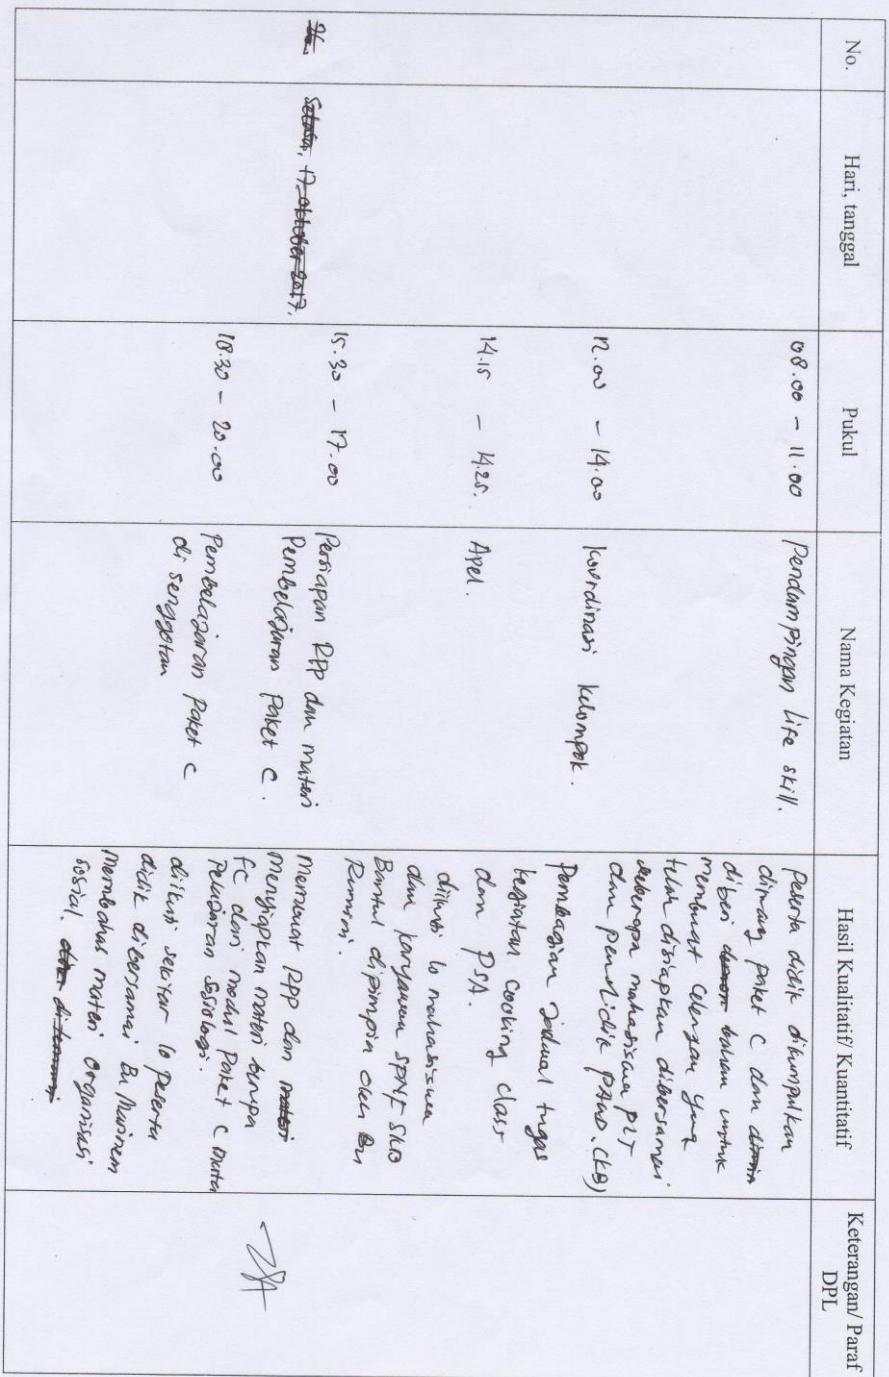 No.
Hari, tanggal
Pukul
Nama Kegiatan
Hasil Kualitatif/ Kuantitatif
Keterangan/ Paraf
DPL
08.00 - 11.00
Pendampingan Life skill.
Peserta didik dikumpulkan
diruang paket C dan
diberi bahan untuk
membuat celengan yang
telah disiapkan dibersamai
beberapa mahasiswa PLT
dan pendidik PAUD. (KB)
12.00 - 14.00
Koordinasi kelompok.
Pembagian Jadwal tugas
kegiatan cooking class
dan PSA.
14.15 - 14.25.
Apel.
diikuti 10 mahasiswa
dan karyawan SPNF SKB
Bantul dipimpin oleh Bu
15.30 - 17.00
Persiapan RPP dan materi
Pembelajaran Paket C.
Membuat RPP dan materi
Menyiapkan materi berupa
FC dari modul Paket C mata
Pelajaran Sosiologi.
17 oktober 2017.
18.30 - 20.00
Pembelajaran Paket C
di senggotan
diikuti sekitar 10 peserta
didik dibersamai Bu Murinem
Membahas materi Organisasi
sosial.